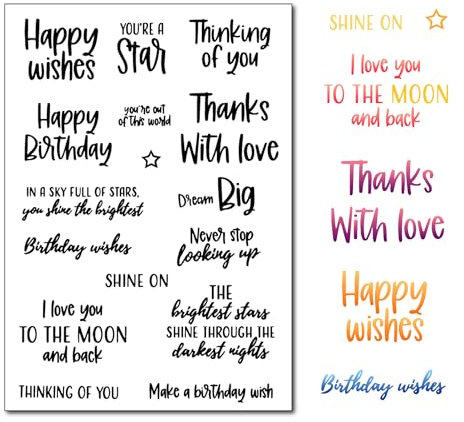 Happy
wishes
YOU'RE A
Star
Thinking
of you
Happy
Birthday
you're out
of this world
Thanks
With love
IN A SKY FULL OF STARS,
you shine the brightest
Dream Big
Birthday wishes
Never stop
looking up
SHINE ON
I love you
TO THE MOON
and back
THE
brightest stars
SHINE THROUGH THE
darkest nights
THINKING OF YOU
Make a birthday wish
SHINE ON
I love you
TO THE MOON
and back
Thanks
With love
Happy
wishes
Birthday wishes